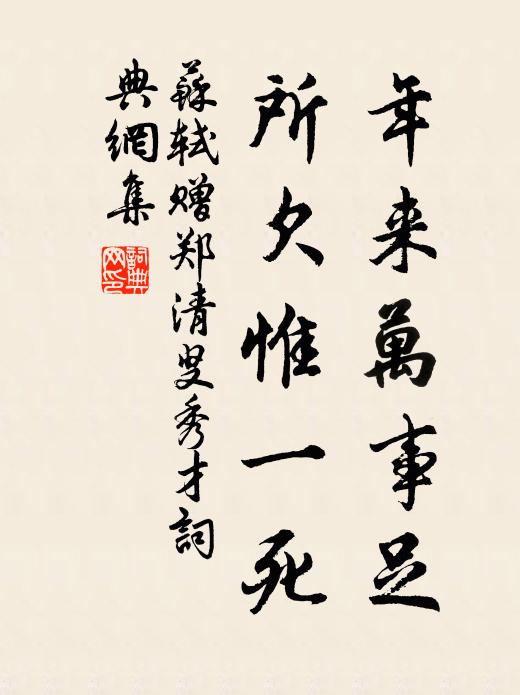 年来萬事足
所欠惟一死
蘇軾贈郑清叟秀才詞
典網集
詞典
网印